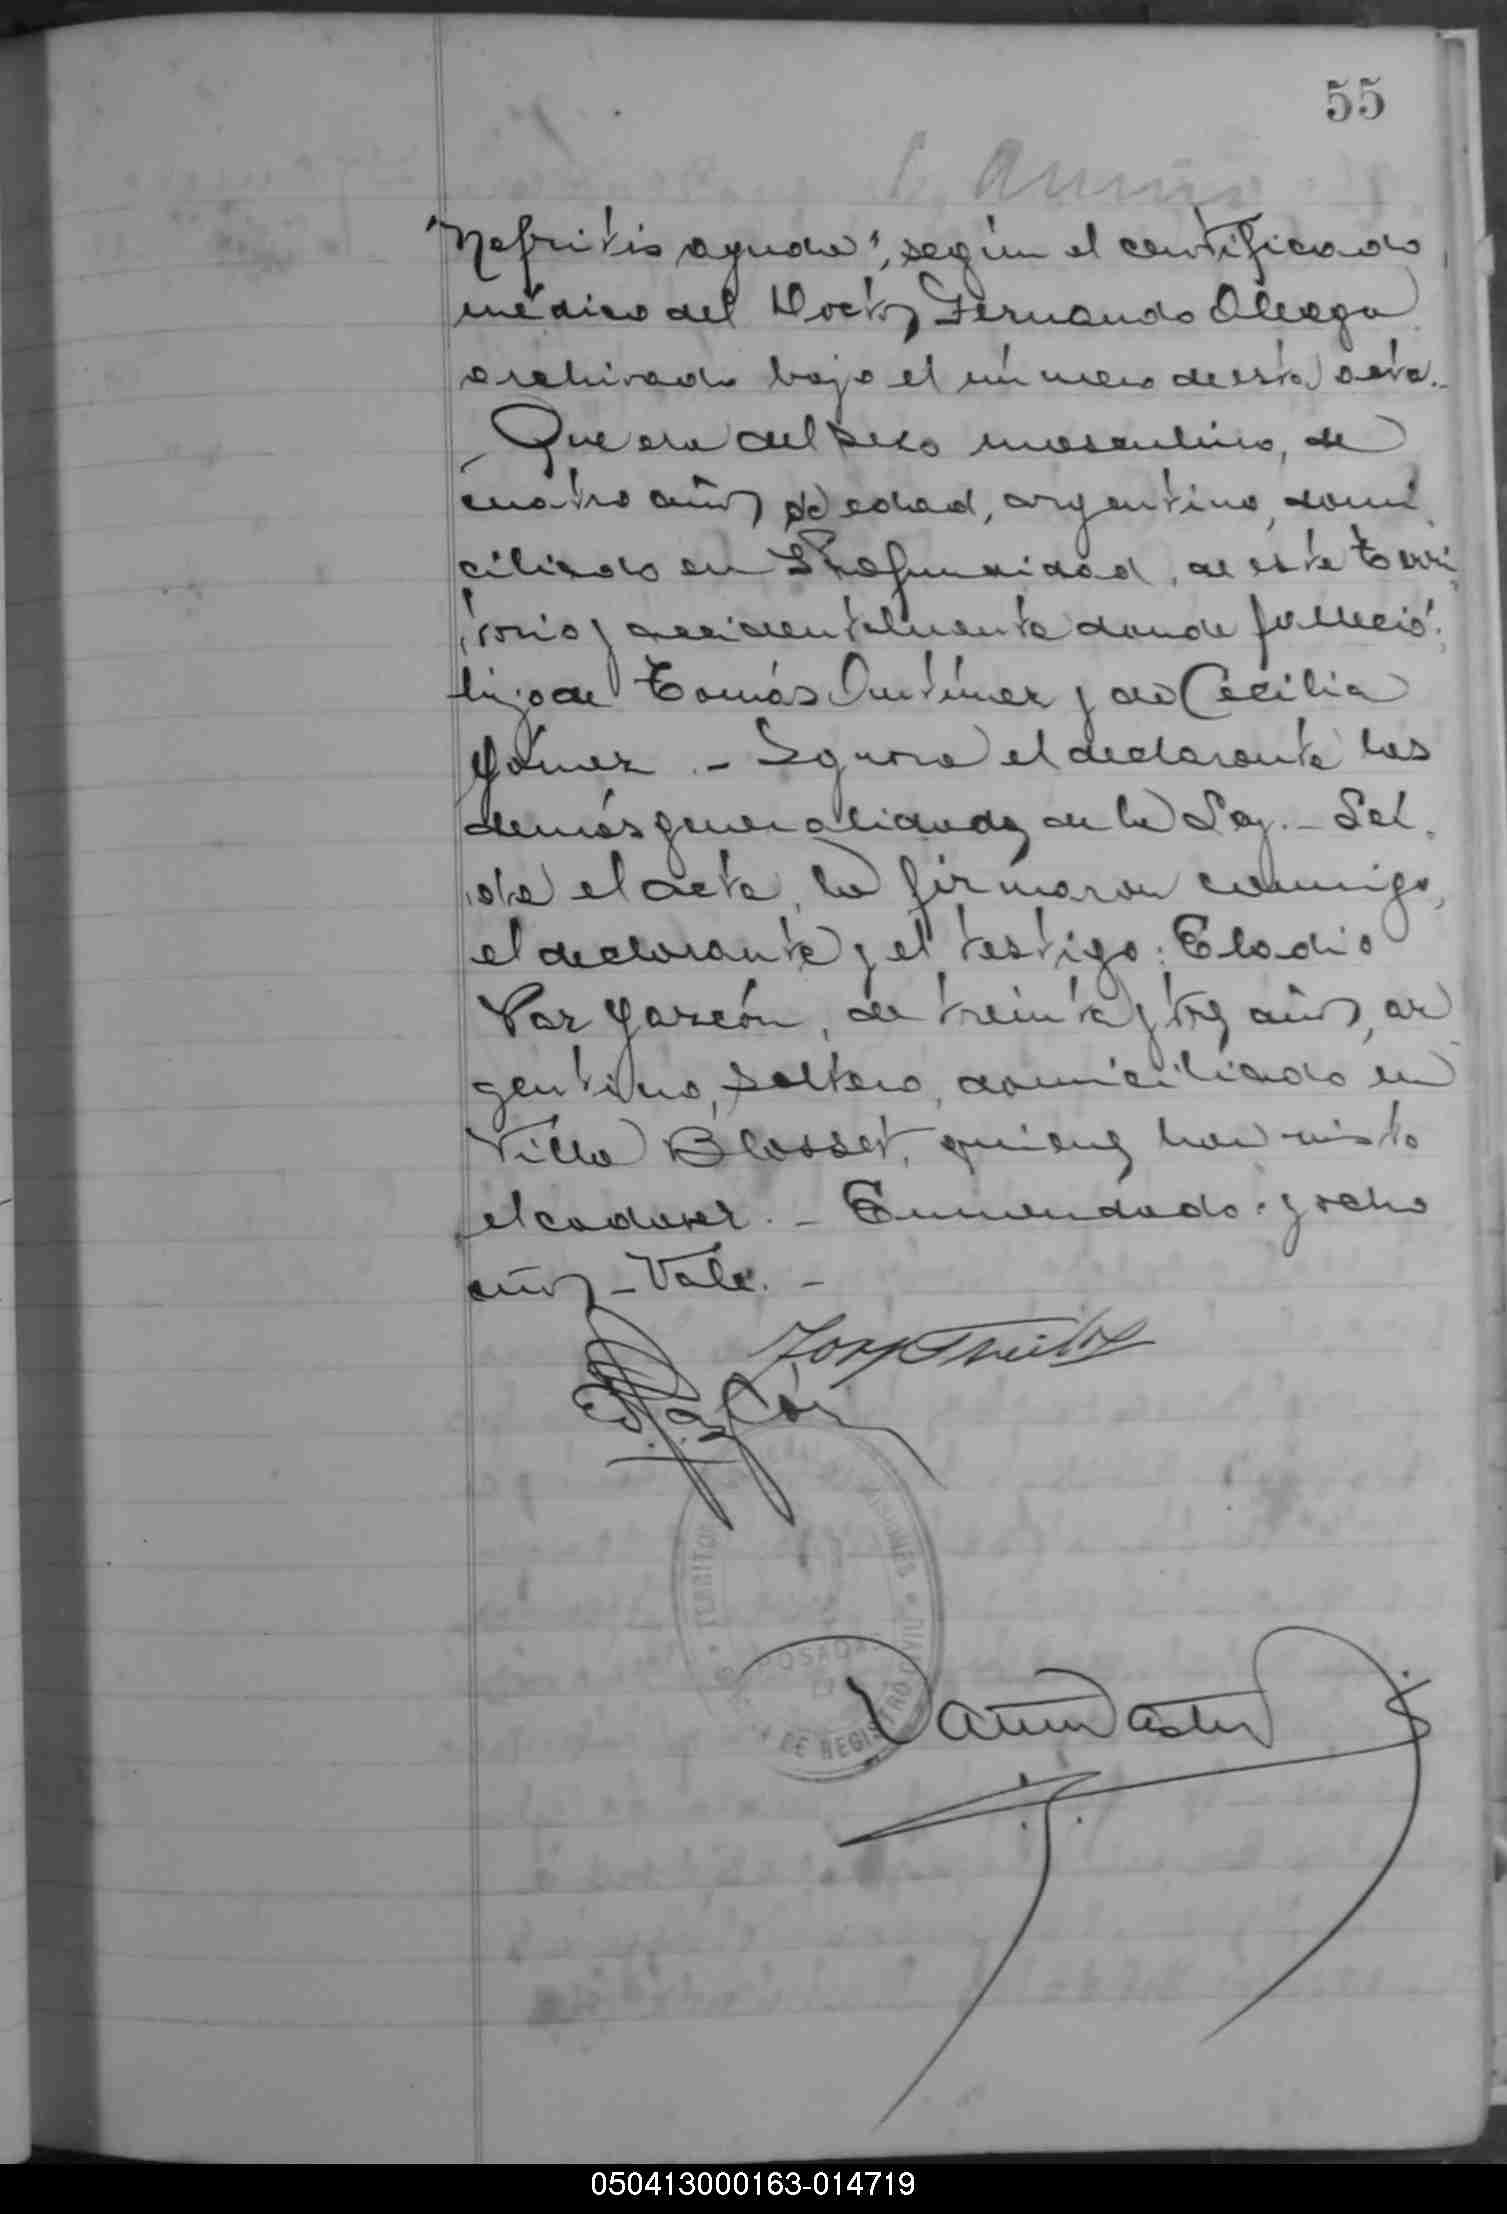 55
"Nefritis aguda", según el certificado
médico del Doctor Fernando Oleaga
archivado bajo el número de esta acta.
Que era del sexo masculino, de
cuatro años de edad, argentino, domi
ciliado en Profundidad, de este Terri
torio y accidentalmente donde falleció;
hijo de Tomás y de Cecilia
Gómez.- Ignora el declarante las
demás generalidades de la Ley.- Leí
da el acta, la firmaron conmigo,
el declarante y el testigo: Eladio
Paz Garzón, de treinta y tres años, ar
gentino, soltero, domiciliado en
Villa Blosset, quienes han visto
el cadaver.- Enmendado: y ocho
años - Vale.-
TERRITORIO MISIONES
POSADAS
DE REGISTRO CIVIL
050413000163-014719